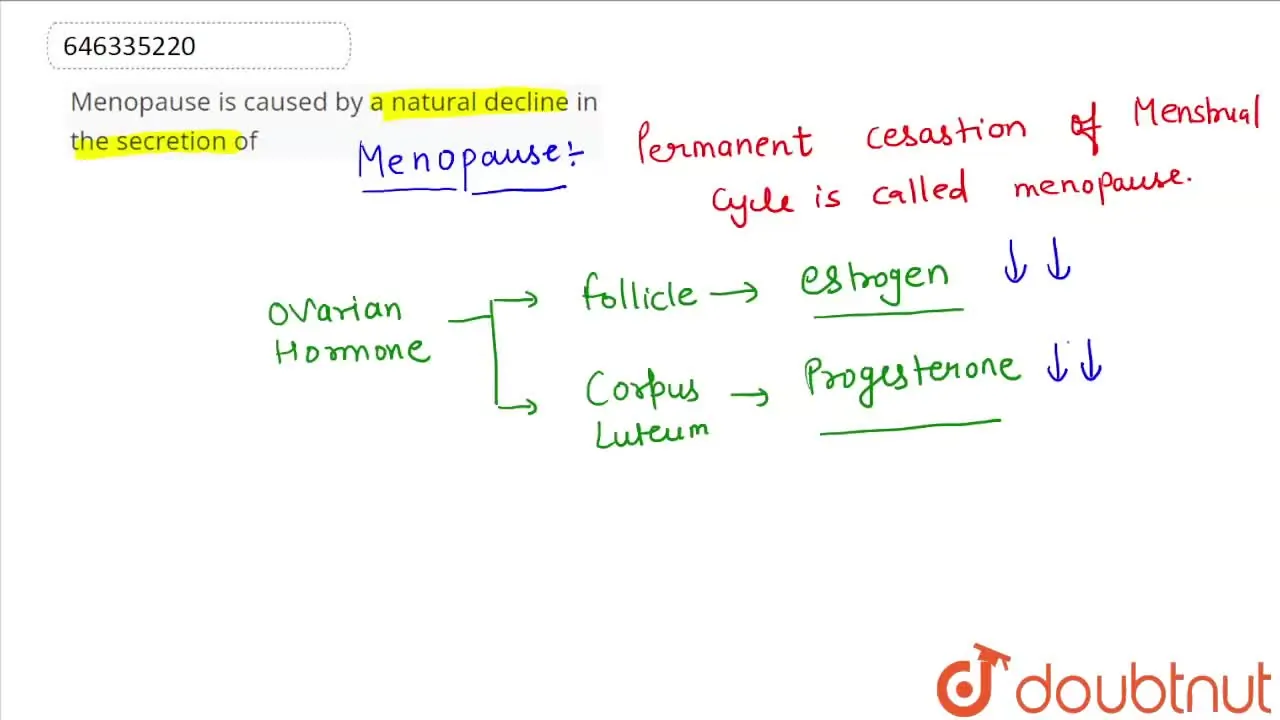 646335220
Menopause is caused by a natural decline in
the secretion of
Menopause :-
Permanent cesastion of Menstrual
cycle is called menopause.
Ovarian
Hormone
follicle → estrogen ↓ ↓
Corpus → Progesterone ↓↓
Luteum
doubtnut